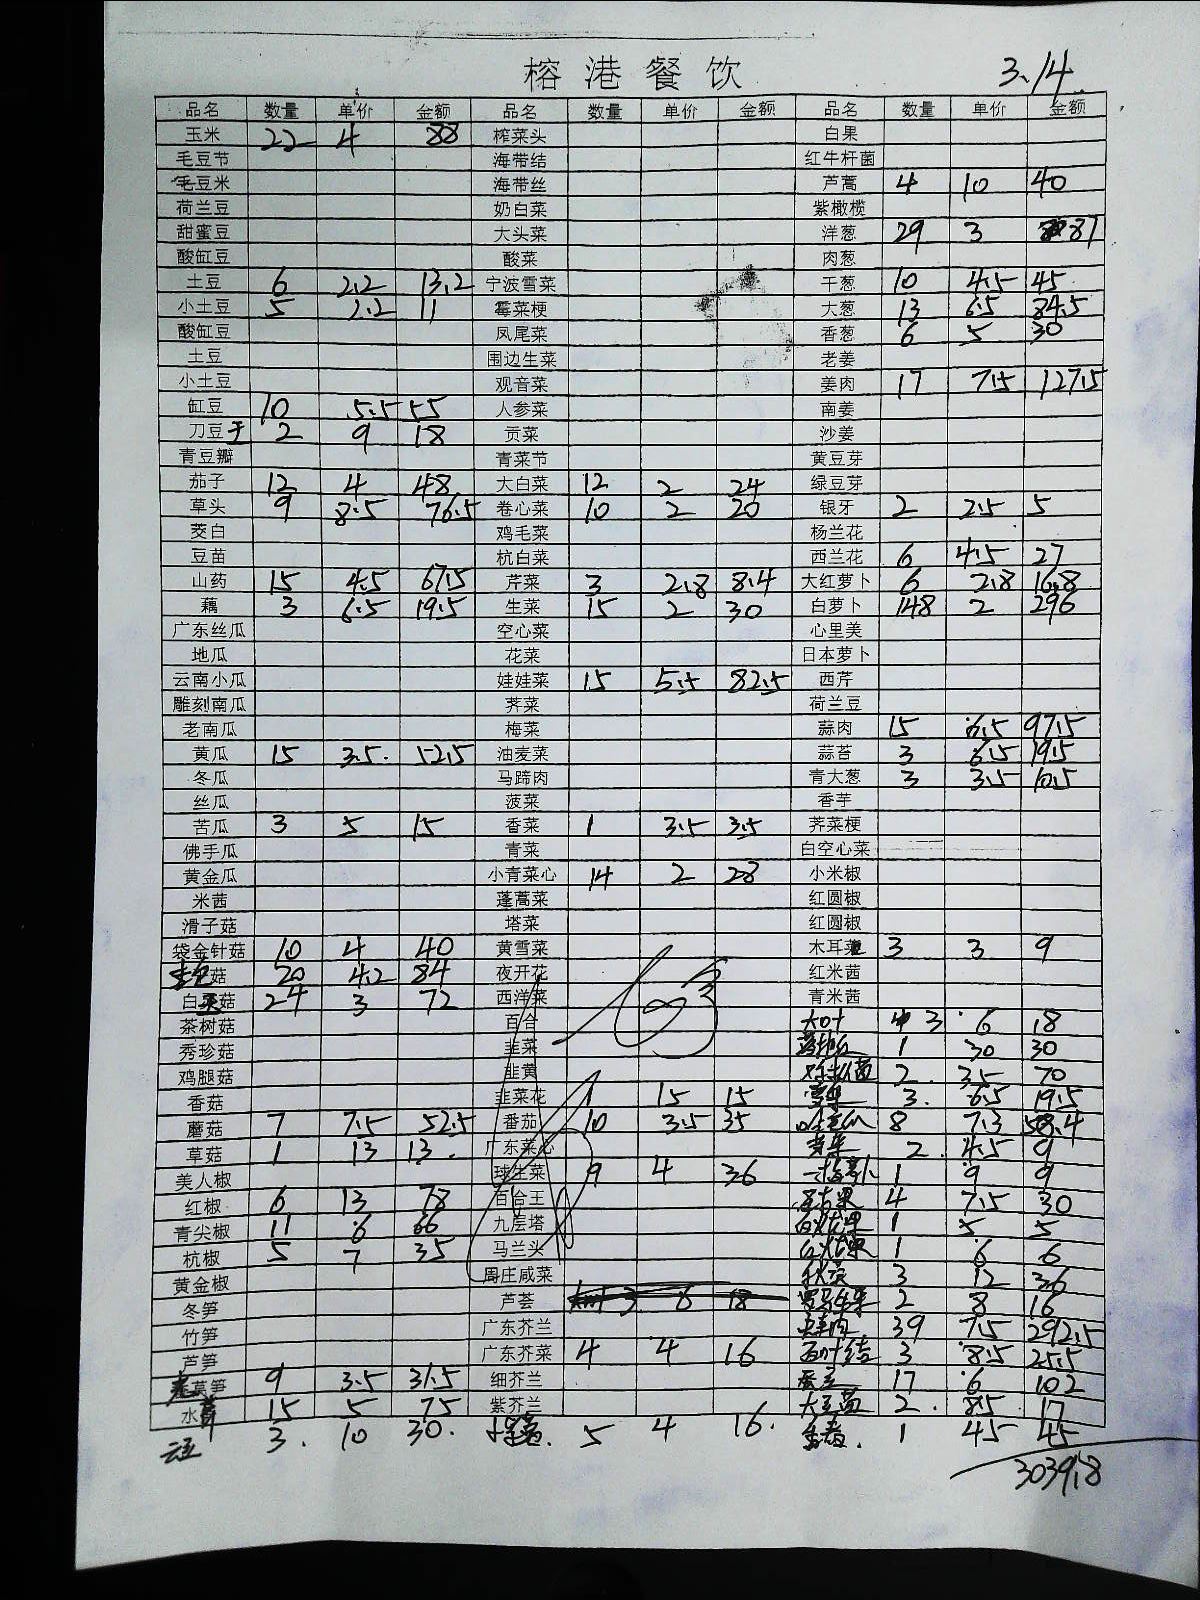 榕港餐饮 3.14
品名 数量 单价 金额 品名 数量 单价 金额 品名 数量 单价 金额
玉米 22 4 88 榨菜头 白果
毛豆节 海带结 红牛杆菌
毛豆米 海带丝 芦蒿 4 10 40
荷兰豆 奶白菜 紫橄榄
甜蜜豆 大头菜 洋葱 29 3 87
酸缸豆 酸菜 肉葱
土豆 6 2.2 13.2 宁波雪菜 干葱 10 4.5 45
小土豆 5 2.2 11 霉菜梗 大葱 13 6.5 84.5
酸缸豆 凤尾菜 香葱 6 5 30
土豆 围边生菜 老姜
小土豆 观音菜 姜肉 17 7.5 127.5
缸豆 10 5.5 55 人参菜 南姜
刀豆 2 9 18 贡菜 沙姜
青豆瓣 青菜节 黄豆芽
茄子 12 4 48 大白菜 12 2 24 绿豆芽
草头 9 8.5 76.5 卷心菜 10 2 20 银牙 2 2.5 5
茭白 鸡毛菜 杨兰花
豆苗 杭白菜 西兰花 6 4.5 27
山药 15 4.5 67.5 芹菜 3 2.8 8.4 大红萝卜 6 2.8 16.8
藕 3 6.5 19.5 生菜 15 2 30 白萝卜 148 2 296
广东丝瓜 空心菜 心里美
地瓜 花菜 日本萝卜
云南小瓜 娃娃菜 15 5.5 82.5 西芹
雕刻南瓜 荠菜 荷兰豆
老南瓜 梅菜 蒜肉 15 6.5 97.5
黄瓜 15 3.5 52.5 油麦菜 蒜苔 3 6.5 19.5
冬瓜 马蹄肉 青大葱 3 3.5 10.5
丝瓜 菠菜 香芋
苦瓜 3 5 15 香菜 1 3.5 3.5 荠菜梗
佛手瓜 青菜 白空心菜
黄金瓜 小青菜心 14 2 28 小米椒
米茜 蓬蒿菜 红圆椒
滑子菇 塔菜 红圆椒
袋金针菇 10 4 40 黄雪菜 木耳菜 3 3 9
菇 20 4.2 84 夜开花 红米茜
白玉菇 24 3 72 西洋菜 青米茜
茶树菇 百合 大叶 3 6 18
秀珍菇 韭菜 1 30 30
鸡腿菇 韭黄 2 35 70
香菇 韭菜花 1 15 15 3 6.5 19.5
蘑菇 7 7.5 52.5 番茄 10 3.5 35 8 7.3 58.4
草菇 1 13 13 广东菜心 2 4.5 9
美人椒 球生菜 9 4 36 1 9 9
红椒 6 13 78 百合王 4 7.5 30
青尖椒 11 6 66 九层塔 1 5 5
杭椒 5 7 35 马兰头 1 6 6
黄金椒 周庄咸菜 3 12 36
冬笋 芦荟 3 6 18 罗马生菜 2 8 16
竹笋 广东芥兰 39 7.5 292.5
芦笋 广东芥菜 4 4 16 3 8.5 25.5
莴笋 9 3.5 31.5 细芥兰 17 6 102
水 15 5 75 紫芥兰 2 8.5 17
3 10 30 5 4 16 1 45 45
3039.8